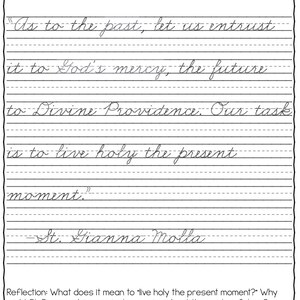 "As to the past, let us entrust
it to God's mercy, the future
to Divine Providence. Our task
is to live holy the present
moment."
-St. Gianna Molla
Reflection: What does it mean to "live holy the present moment?" Why